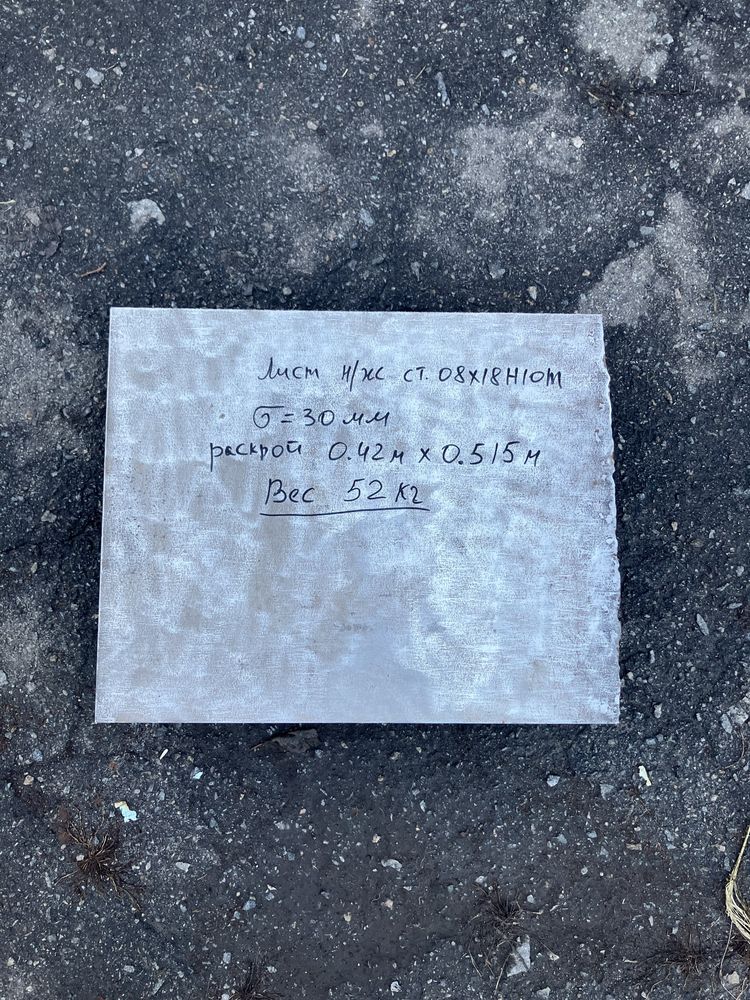 Лист н/ж ст. 08Х18Н10Т
σ = 30 мм
раскрой 0.42 м х 0.515 м
Вес 52 кг